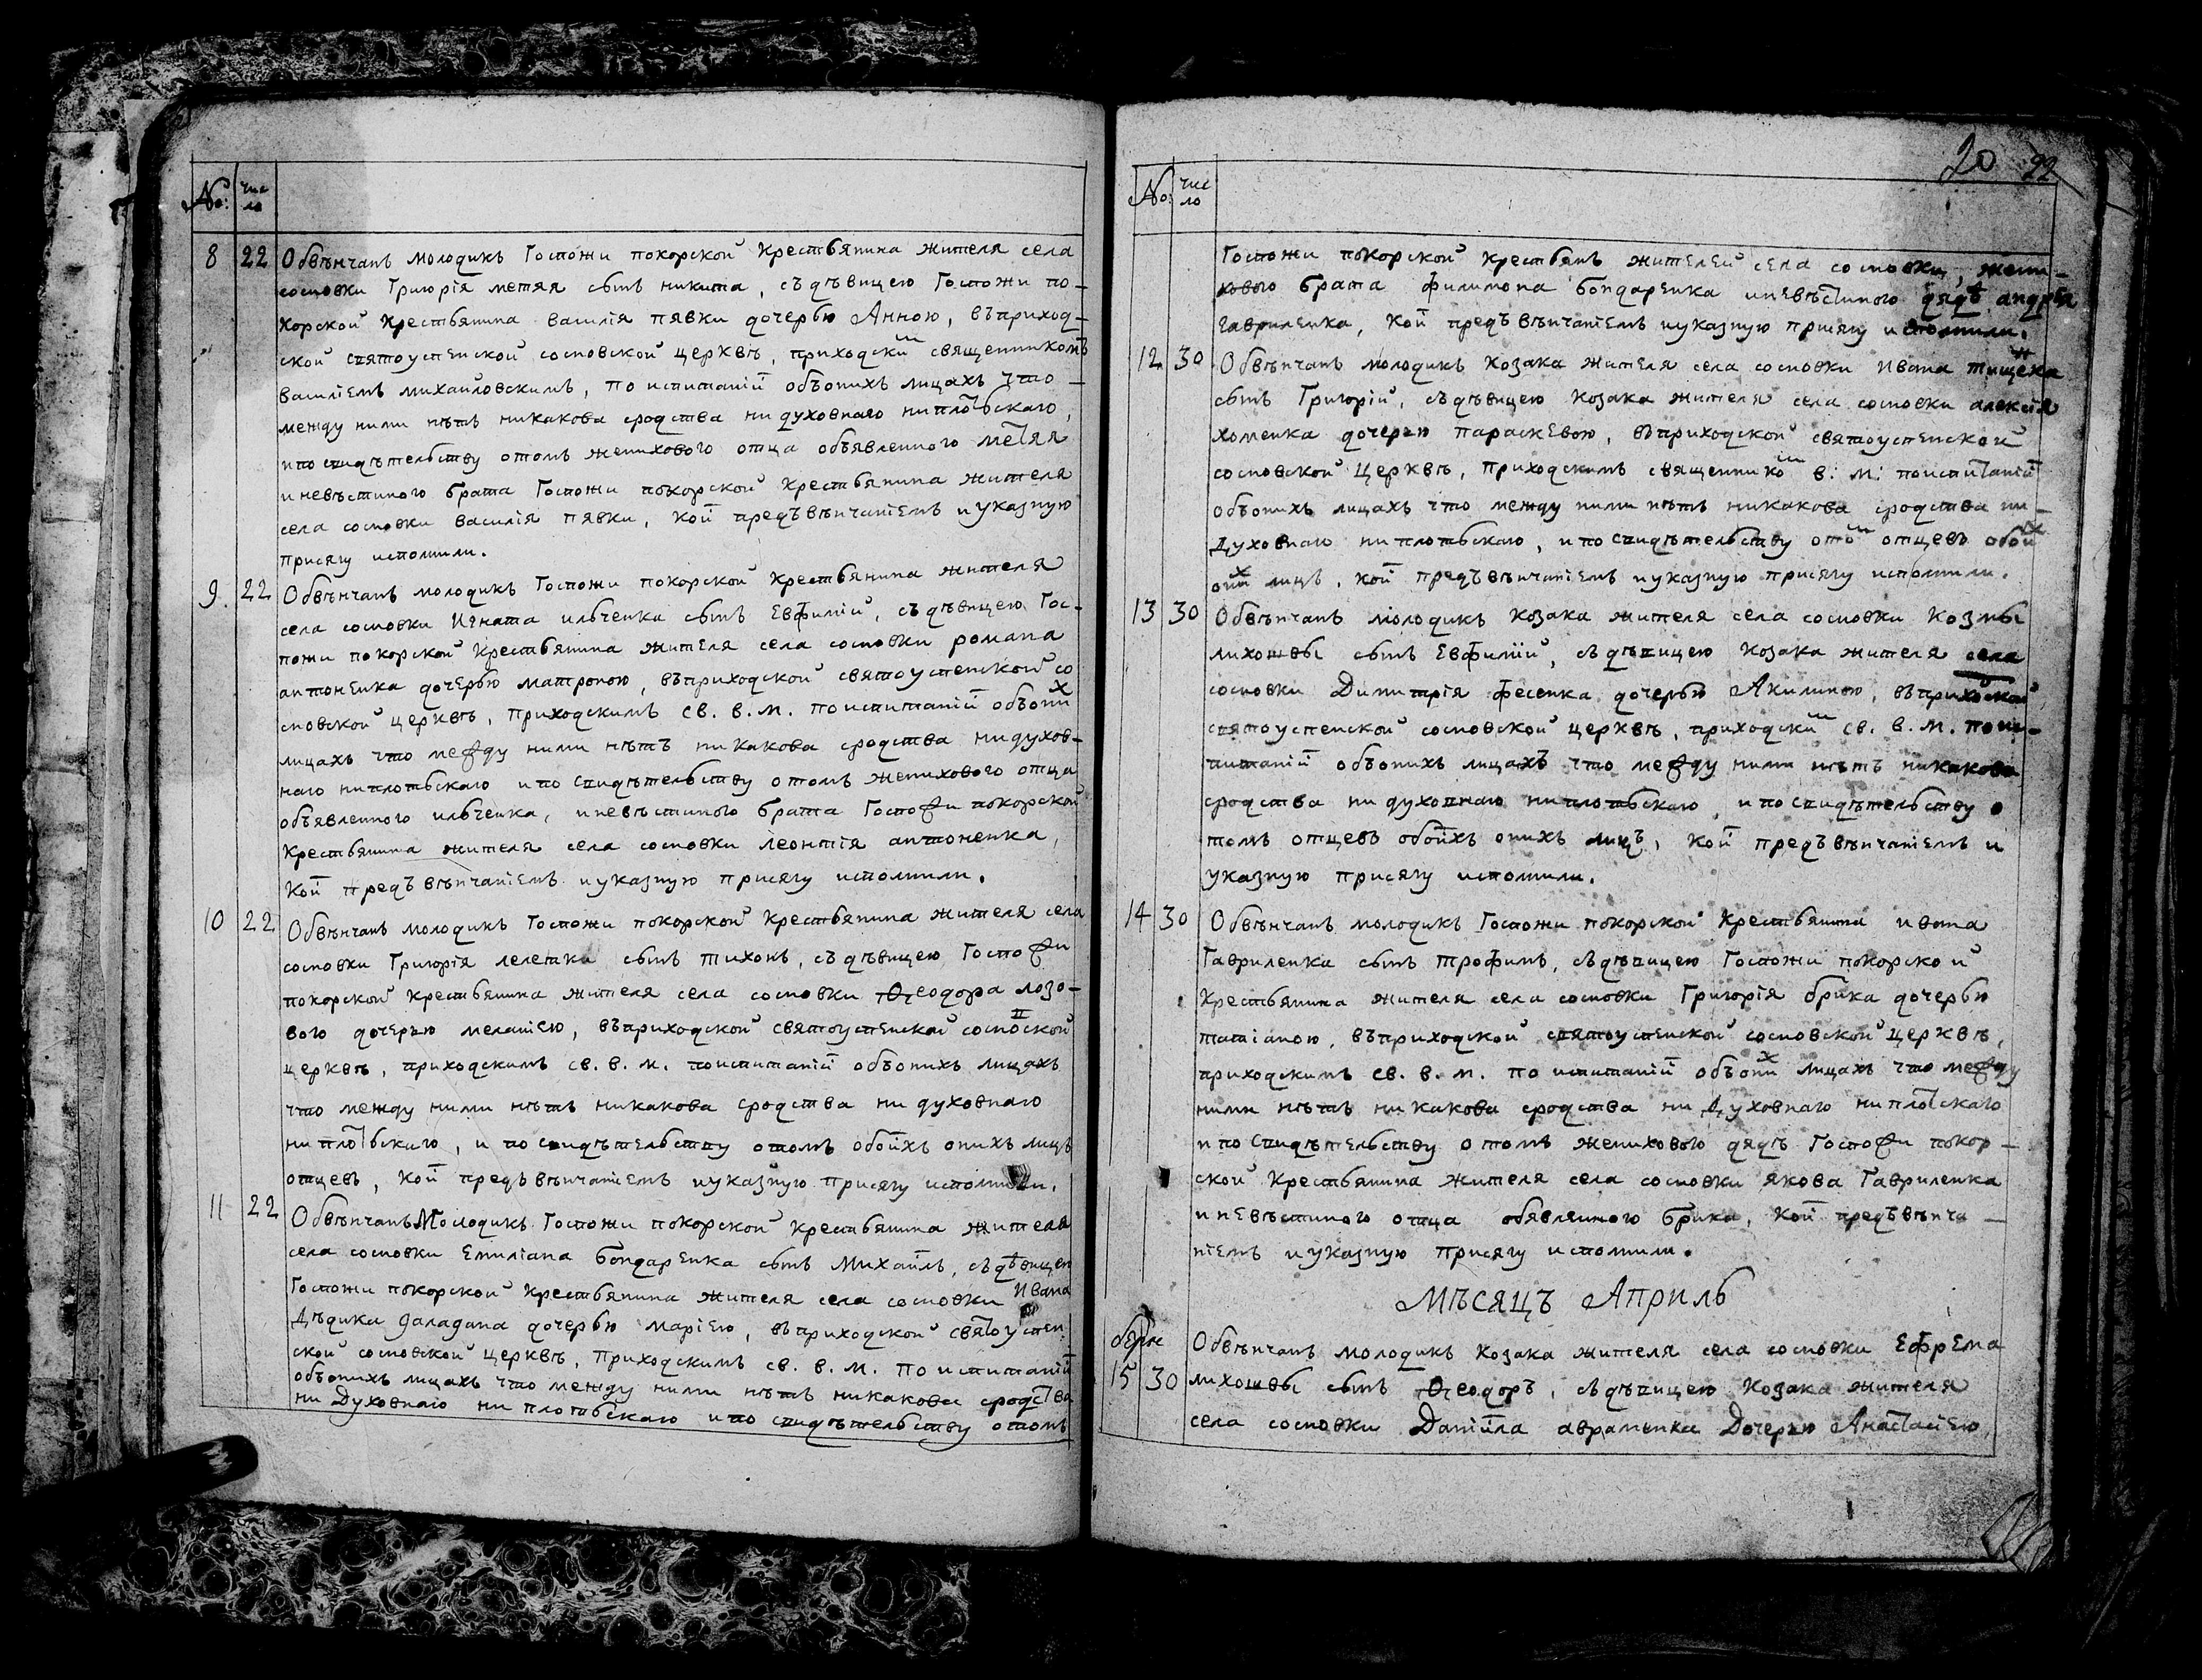 №: чис
ло
8 22 Обвѣнчанъ молодикъ Госпожи покорской крестьянина жителя села
сосновки Григорія метяя сынъ никита, съ дѣвицею Госпожи по-
корской крестьянина василія пявки дочерью Анною, въ приход-
ской святоуспенской сосновской церквѣ, приходскимъ священникомъ
василіемъ михайловскимъ, по испитаніи объ онихъ лицахъ что
между ними нѣтъ никакова сродства ни духовнаго ни плотьскаго,
и по свидѣтельству о томъ женихового отца объявленного метяя
и невѣстиного брата Госпожи покорской крестьянина жителя
села сосновки василія пявки, кои предъ вѣнчаніемъ и указную
присягу исполнили.
9. 22 Обвѣнчанъ молодикъ Госпожи покорской крестьянина жителя
села сосновки Игната ильченка сынъ Евфимій, съ дѣвицею Гос-
пожи покорской крестьянина жителя села сосновки романа
антоненка дочерью матроною, въ приходской святоуспенской со
сновской церквѣ, приходскимъ св. в. м. по испитаніи объ онихъ
лицахъ что между ними нѣтъ никакова сродства ни духов-
наго ни плотьскаго и по свидѣтельству о томъ женихового отца
объявленного ильченка, и невѣстиного брата Госпожи покорской
крестьянина жителя села сосновки леонтія антоненка,
кои предъ вѣнчаніемъ и указную присягу исполнили.
10 22 Обвѣнчанъ молодикъ Госпожи покорской крестьянина жителя села
сосновки Григорія лелетка сынъ тихонъ, съ дѣвицею Госпожи
покорской крестьянина жителя села сосновки Ѳеодора лозо-
вого дочерью меланіею, въ приходской святоуспенской сосновской
церквѣ, приходскимъ св. в. м. по испитаніи объ онихъ лицахъ
что между ними нѣтъ никакова сродства ни духовнаго
ни плотьскаго, и по свидѣтельству о томъ обоихъ онихъ лицъ
отцевъ, кои предъ вѣнчаніемъ и указную присягу исполнили.
11 22 Обвѣнчанъ Молодикъ Госпожи покорской крестьянина жителя
села сосновки Емиліана бондаренка сынъ Михаилъ, съ дѣвицею
Госпожи покорской крестьянина жителя села сосновки Ивана
Дѣдика даладана дочерью маріею, въ приходской святоуспен-
ской сосновской церквѣ, приходскимъ св. в. м. по испитаніи
объ онихъ лицахъ что между ними нѣтъ никакова сродства
ни Духовнаго ни плотьскаго и по свидѣтельству о томъ
20 22
№: чис
ло
Госпожи покорской крестьянъ жителей села сосновки, жени-
хового брата филимона бондаренка и невѣстиного дядѣ андрея
гавриленка, кои предъ вѣнчаніемъ и указную присягу исполнили.
12 30 Обвѣнчанъ молодикъ козака жителя села сосновки Ивана
сынъ Григорій, съ дѣвицею козака жителя села сосновки алексія
хоменка дочерью параскевою, въ приходской святоуспенской
сосновской церквѣ, приходскимъ священникомъ в: м: по испитаніи
объ онихъ лицахъ что между ними нѣтъ никакова сродства ни-
духовнаго ни плотьскаго, и по свидѣтельству о томъ отцевъ обоихъ
онихъ лицъ, кои предъ вѣнчаніемъ и указную присягу исполнили.
13 30 Обвѣнчанъ молодикъ козака жителя села сосновки Козмы
лихошвы сынъ Евфимій, съ дѣвицею козака жителя села
сосновки Димитрія фесенка дочерью Акилиною, въ приходской
святоуспенской сосновской церквѣ, приходскимъ св. в. м. по ис-
питаніи объ онихъ лицахъ что между ними нѣтъ никакова
сродства ни духовнаго ни плотьскаго, и по свидѣтельству о
томъ отцевъ обоихъ онихъ лицъ, кои предъ вѣнчаніемъ и
указную присягу исполнили.
14 30 Обвѣнчанъ молодикъ Госпожи покорской крестьянина ивана
Гавриленка сынъ трофимъ, съ дѣвицею Госпожи покорской
крестьянина жителя села сосновки Григорія брика дочерью
татіаною, въ приходской святоуспенской сосновской церквѣ,
приходскимъ св. в. м. по испитаніи объ онихъ лицахъ что между
ними нѣтъ никакова сродства ни Духовнаго ни плотскаго
и по свидѣтельству о томъ женихового дядѣ Госпожи покор-
ской крестьянина жителя села сосновки якова Гавриленка
и невѣстиного отца обявленного брика, кои предъ вѣнча-
ніемъ и указную присягу исполнили.
Мѣсяцъ Априль
15 30 Обвѣнчанъ молодикъ козака жителя села сосновки Ефрема
лихошвы сынъ Ѳеодоръ, съ дѣвицею козака жителя
села сосновки Даніила авраменка Дочерью Анастасіею,